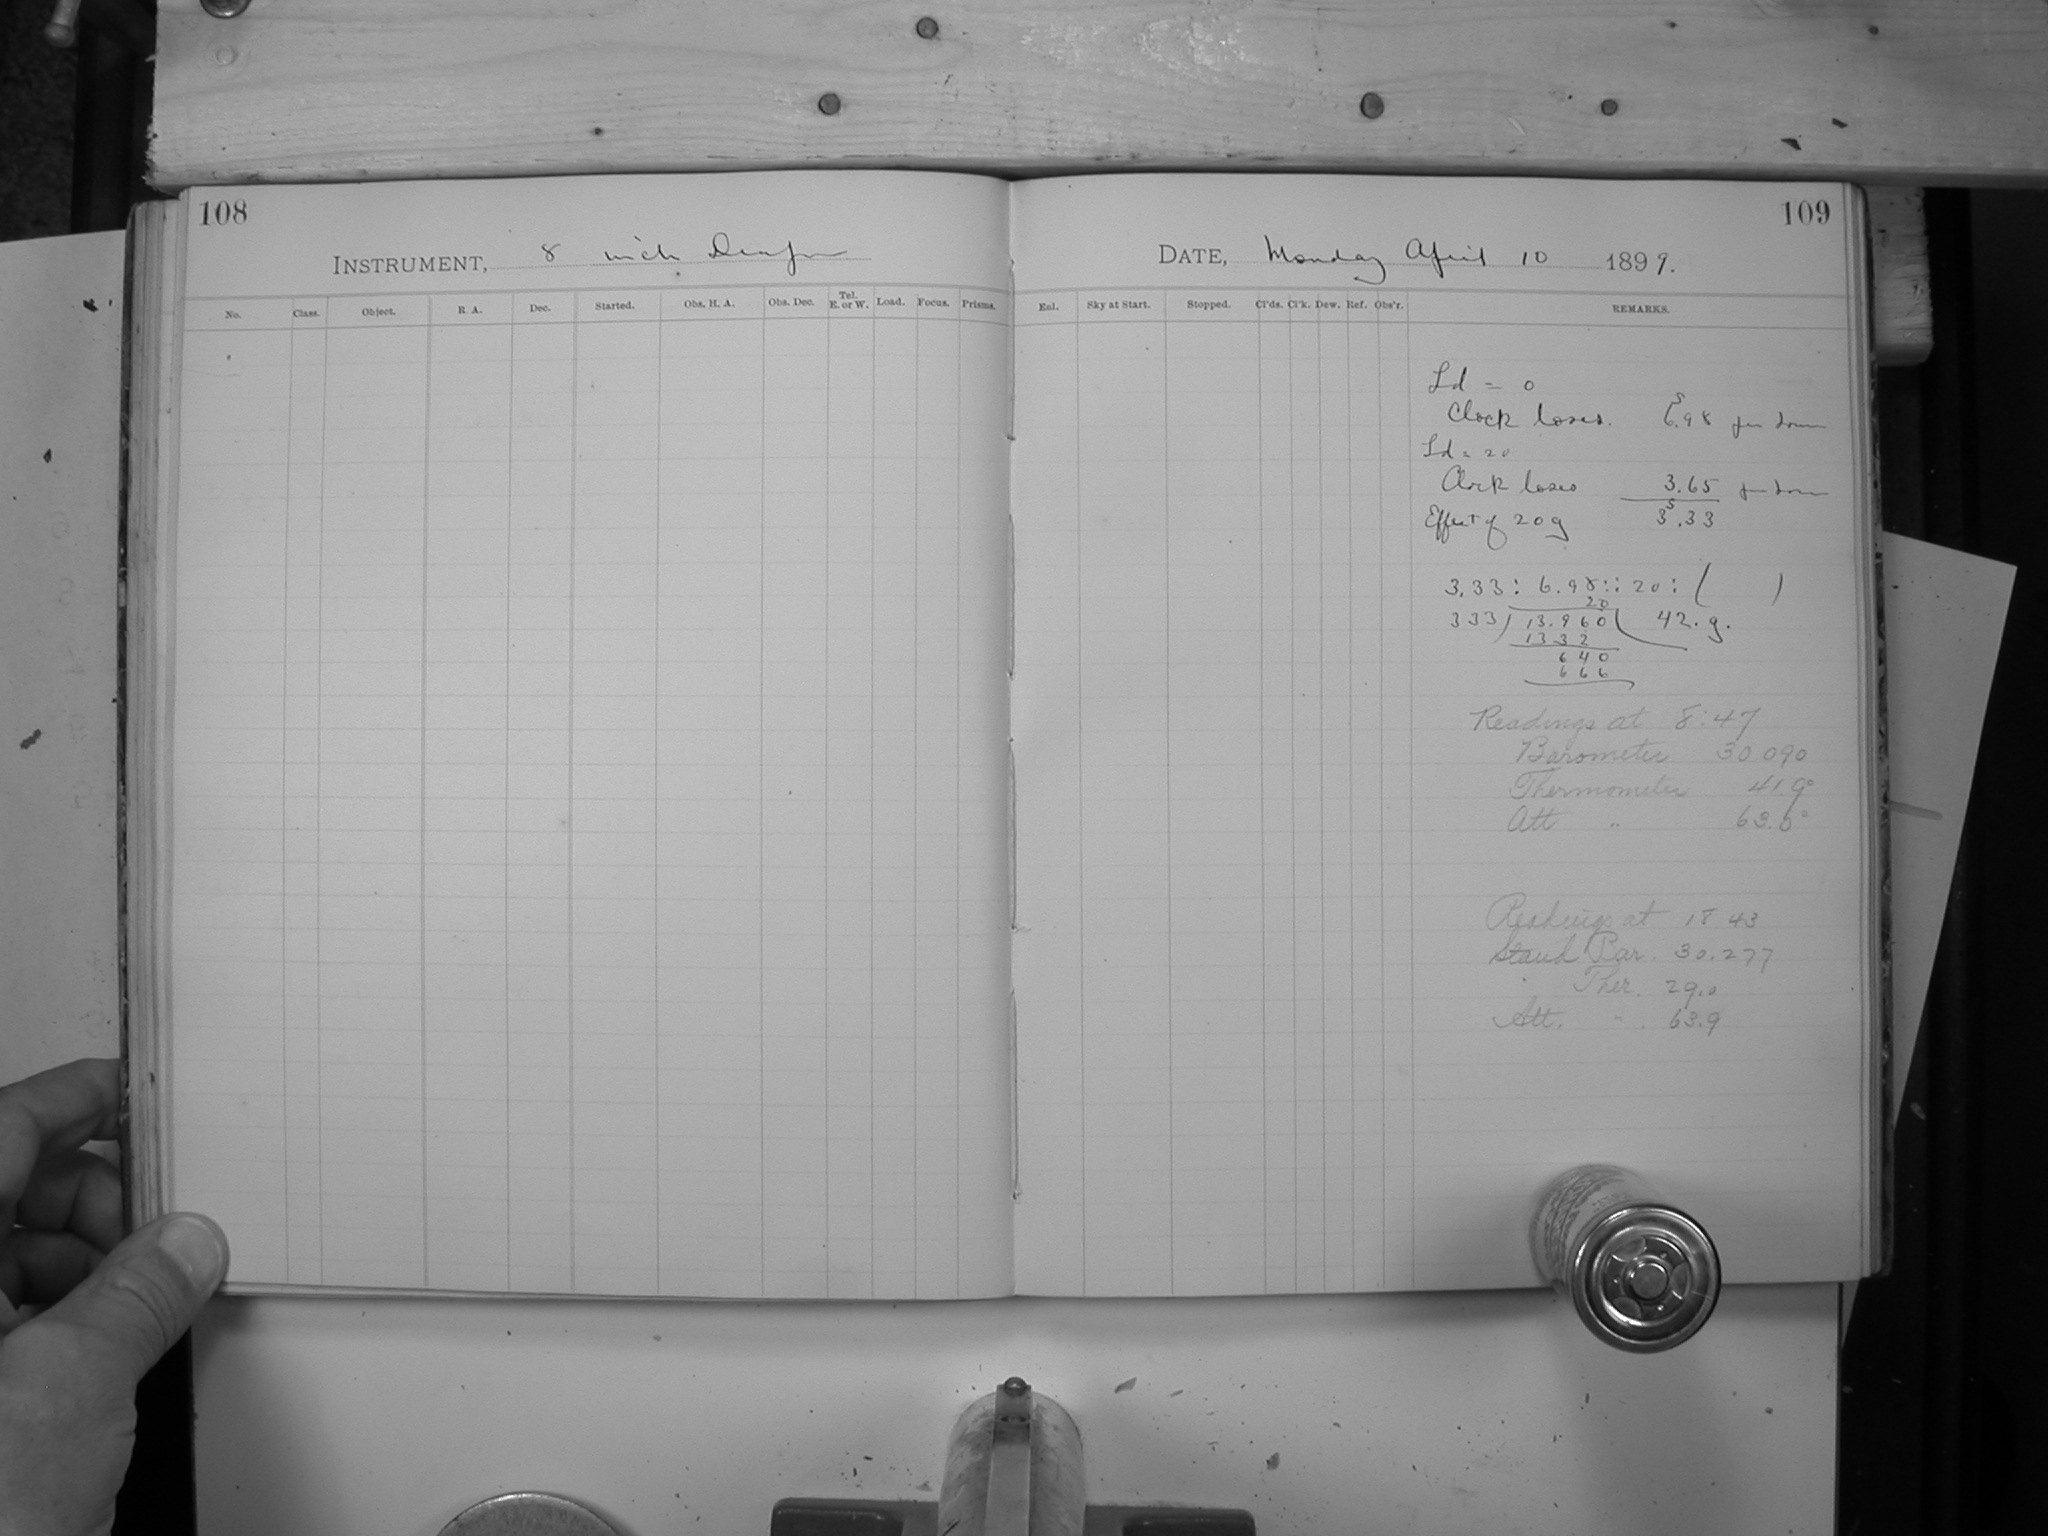 108
INSTRUMENT, 8 inch Draper
No. Class. Object. R. A. Dec. Started. Obs. H. A. Obs. Dec. Tel. E. or W. Load. Focus. Prisms.
109
DATE, Monday April 10 1899.
Enl. Sky at Start. Stopped. Cl'ds. Cl'k. Dew. Ref. Obs'r. REMARKS.
Ld = 0
Clock loses. 6.98 per hour
Ld = 20
Clock loses 3.65 per hour
Effect of 20g 3s.33
3.33 : 6.98 :: 20 : ( )
20
333 ) 13.960 ( 42. g.
1332
640
666
Readings at 8:47
Barometer 30.090
Thermometer 41.9°
Att "
Readings at 18 43
Stand Bar. 30.277
" Ther. 29.0
Att. " 63.9